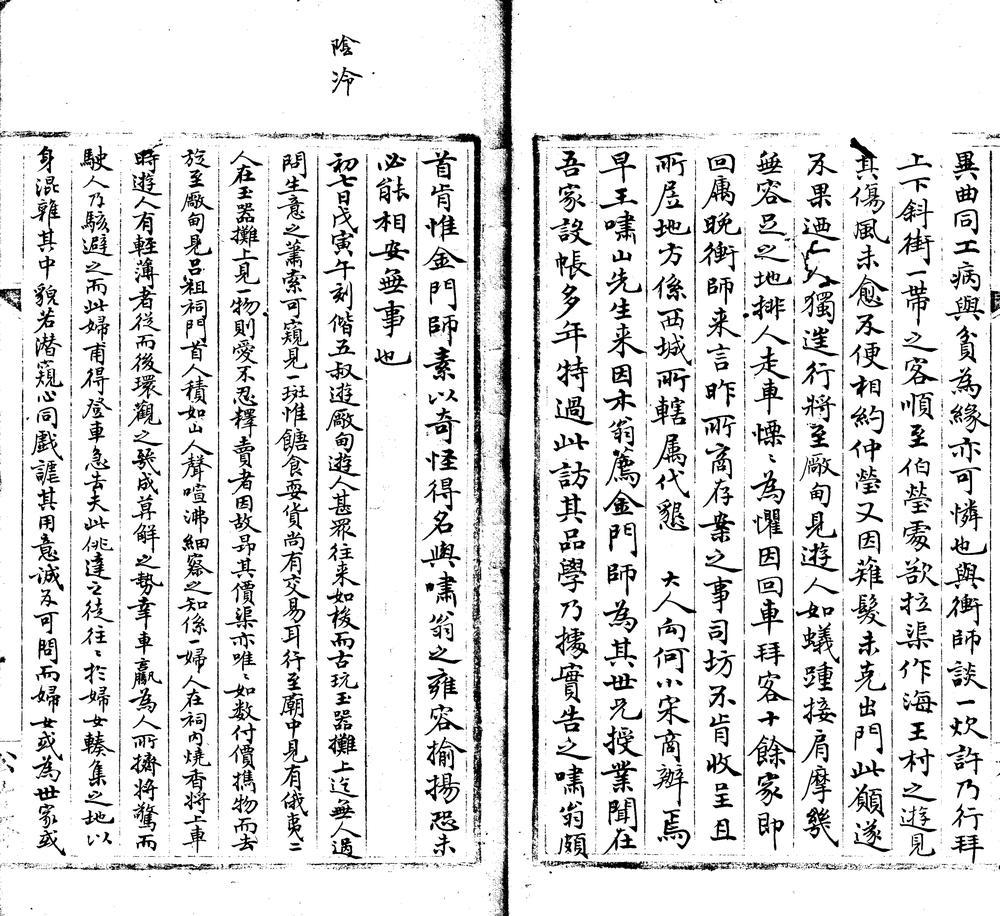 異曲同工病與貧為緣亦可憐也與衝師談一炊許乃行拜
上下斜街一帶之客順至伯瑩處欲拉渠作海王村之遊見
其傷風未愈不便相約仲瑩又因薙髮未克出門此願遂
不果廼獨遄行將至廠甸見遊人如蟻踵接肩摩幾
無容足之地排人走車慄〻為懼因回車拜客十餘家即
回寓晚衝師来言昨所商存案之事司坊不肯收呈且
所居地方係西城所轄属代懇 大人向何小宋商辦焉
早王嘯山先生来因木翁薦金門師為其世兄授業聞在
吾家設帳多年特過此訪其品學乃據實告之嘯翁頗
首肯惟金門師素以奇怪得名與嘯翁之雍容揄揚恐未
必能相安無事也
陰冷
初七日戊寅午刻偕五叔遊廠甸遊人甚眾往来如梭而古玩玉器攤上迄無人過
問生意之蕭索可窺見一斑惟餹食耍貨尚有交易耳行至廟中見有俄夷二
人在玉器攤上見一物則愛不忍釋賣者因故昂其價渠亦唯〻如数付價攜物而去
旋至廠甸見呂祖祠門首人積如山人聲喧沸細察之知係一婦人在祠內燒香將上車
時遊人有輕薄者從而後環觀之幾成莫解之勢幸車驘為人所擠將驚而
駛人乃駭避之而此婦甫得登車急去夫此佻達之徒往〻於婦女輳集之地以
身混雜其中貌若潛窺心同戲謔其用意誠不可問而婦女或為世家或